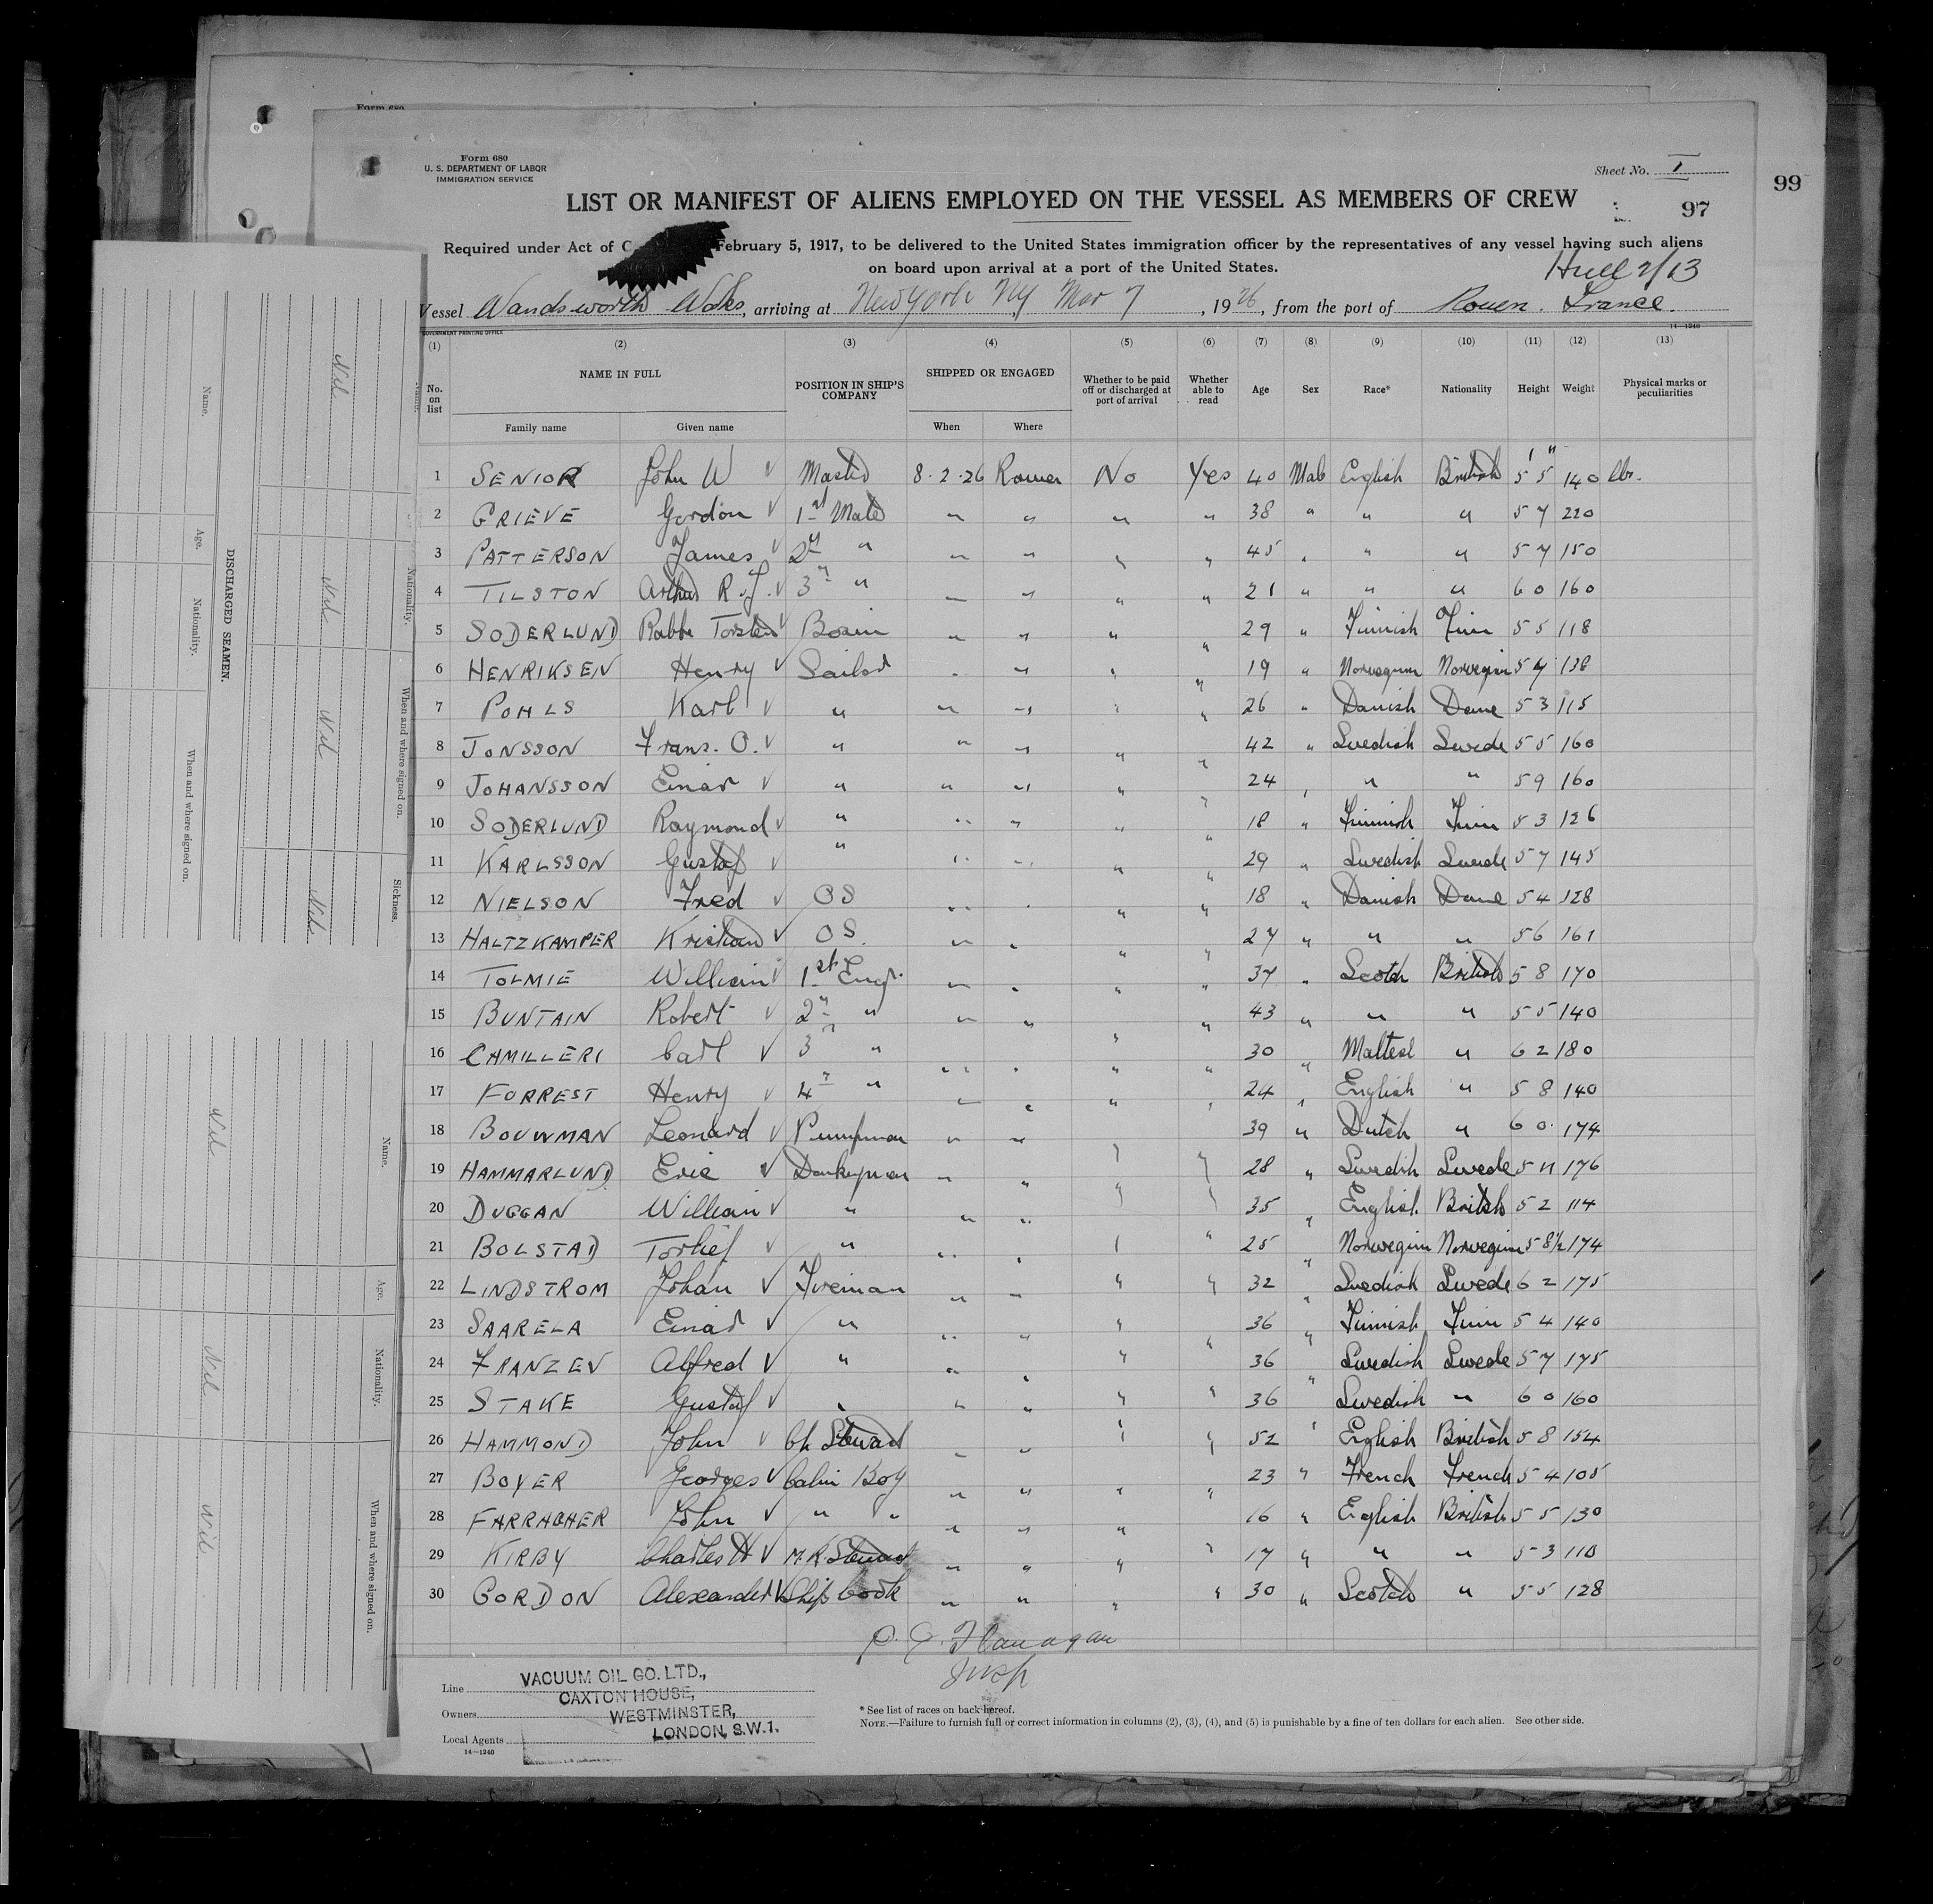 Form 680
Form 680
U. S. DEPARTMENT OF LABOR
IMMIGRATION SERVICE
Sheet No. I
99
LIST OR MANIFEST OF ALIENS EMPLOYED ON THE VESSEL AS MEMBERS OF CREW
97
Required under Act of C February 5, 1917, to be delivered to the United States immigration officer by the representatives of any vessel having such aliens
on board upon arrival at a port of the United States.
Hull 2/13
Vessel Wandsworth Works, arriving at New York NY Mar 7, 1926, from the port of Rouen. France.
GOVERNMENT PRINTING OFFICE
14—1240
(1) (2) (3) (4) (5) (6) (7) (8) (9) (10) (11) (12) (13)
No. on list NAME IN FULL POSITION IN SHIP'S COMPANY SHIPPED OR ENGAGED Whether to be paid off or discharged at port of arrival Whether able to read Age Sex Race* Nationality Height Weight Physical marks or peculiarities
Family name Given name When Where
1 SENIOR John W √ Master 8.2.26 Rouen No Yes 40 Male English British 5' 5" 140 lbs.
2 GRIEVE Gordon √ 1st Mate " " " " 38 " " " 5 7 220
3 PATTERSON James √ 2nd " " " " " 45 " " " 5 7 150
4 TILSTON Arthur R. J. √ 3rd " " " " " 21 " " " 6 0 160
5 SODERLUND Rabbe Torsten √ Bosun " " " " 29 " Finnish Finn 5 5 118
6 HENRIKSEN Henry √ Sailor " " " " 19 " Norwegian Norwegian 5 4 138
7 POHLS Karl √ " " " " " 26 " Danish Dane 5 3 115
8 JONSSON Franz. O. √ " " " " " 42 " Swedish Swede 5 5 160
9 JOHANSSON Einar √ " " " " " 24 " " " 5 9 160
10 SODERLUND Raymond √ " " " " " 18 " Finnish Finn 5 3 126
11 KARLSSON Gustaf √ " " " " " 29 " Swedish Swede 5 7 145
12 NIELSON Fred √ OS " " " " 18 " Danish Dane 5 4 128
13 HALTZKAMPER Kristian √ OS. " " " " 27 " " " 5 6 161
14 TOLMIE William √ 1st Engr. " " " " 37 " Scotch British 5 8 170
15 BUNTAIN Robert √ 2nd " " " " " 43 " " " 5 5 140
16 CAMILLERI Carl √ 3rd " " " " " 30 " Maltese " 6 2 180
17 FORREST Henry √ 4th " " " " " 24 " English " 5 8 140
18 BOUWMAN Leonard √ Pumpman " " " " 39 " Dutch " 6 0. 174
19 HAMMARLUND Eric √ Donkeyman " " " " 28 " Swedish Swede 5 11 176
20 DUGGAN William √ " " " " " 35 " English British 5 2 114
21 BOLSTAD Torlief √ " " " " " 25 " Norwegian Norwegian 5 8½ 174
22 LINDSTROM Johan √ Fireman " " " " 32 " Swedish Swede 6 2 175
23 SAARELA Einar √ " " " " " 36 " Finnish Finn 5 4 140
24 FRANZEN Alfred √ " " " " 36 " Swedish Swede 5 7 175
25 STAKE Gustaf √ " " " " " 36 Swedish " 6 0 160
26 HAMMOND John √ Ch Steward " " " " 52 " English British 5 8 154
27 BOYER Georges √ Cabin Boy " " " " 23 " French French 5 4 105
28 FARRAGHER John √ " " " " " 16 " English British 5 5 130
29 KIRBY Charles H √ M.R. Steward " " " " 17 " " " 5 3 110
30 GORDON Alexander √ Ships Cook " " " " 30 " Scotch " 5 5 128
P. J. Flanagan
Insp
Line
Owners
Local Agents
14—1240
VACUUM OIL CO. LTD.,
CAXTON HOUSE,
WESTMINSTER,
LONDON, S.W.1.
* See list of races on back hereof.
NOTE.—Failure to furnish full or correct information in columns (2), (3), (4), and (5) is punishable by a fine of ten dollars for each alien. See other side.
DISCHARGED SEAMEN.
Name. Age. Nationality. When and where signed on.
Nationality. When and where signed on. Sickness.
Nil Nil Nil Nil
Name. Age. Nationality. When and where signed on.
Nil Nil Nil